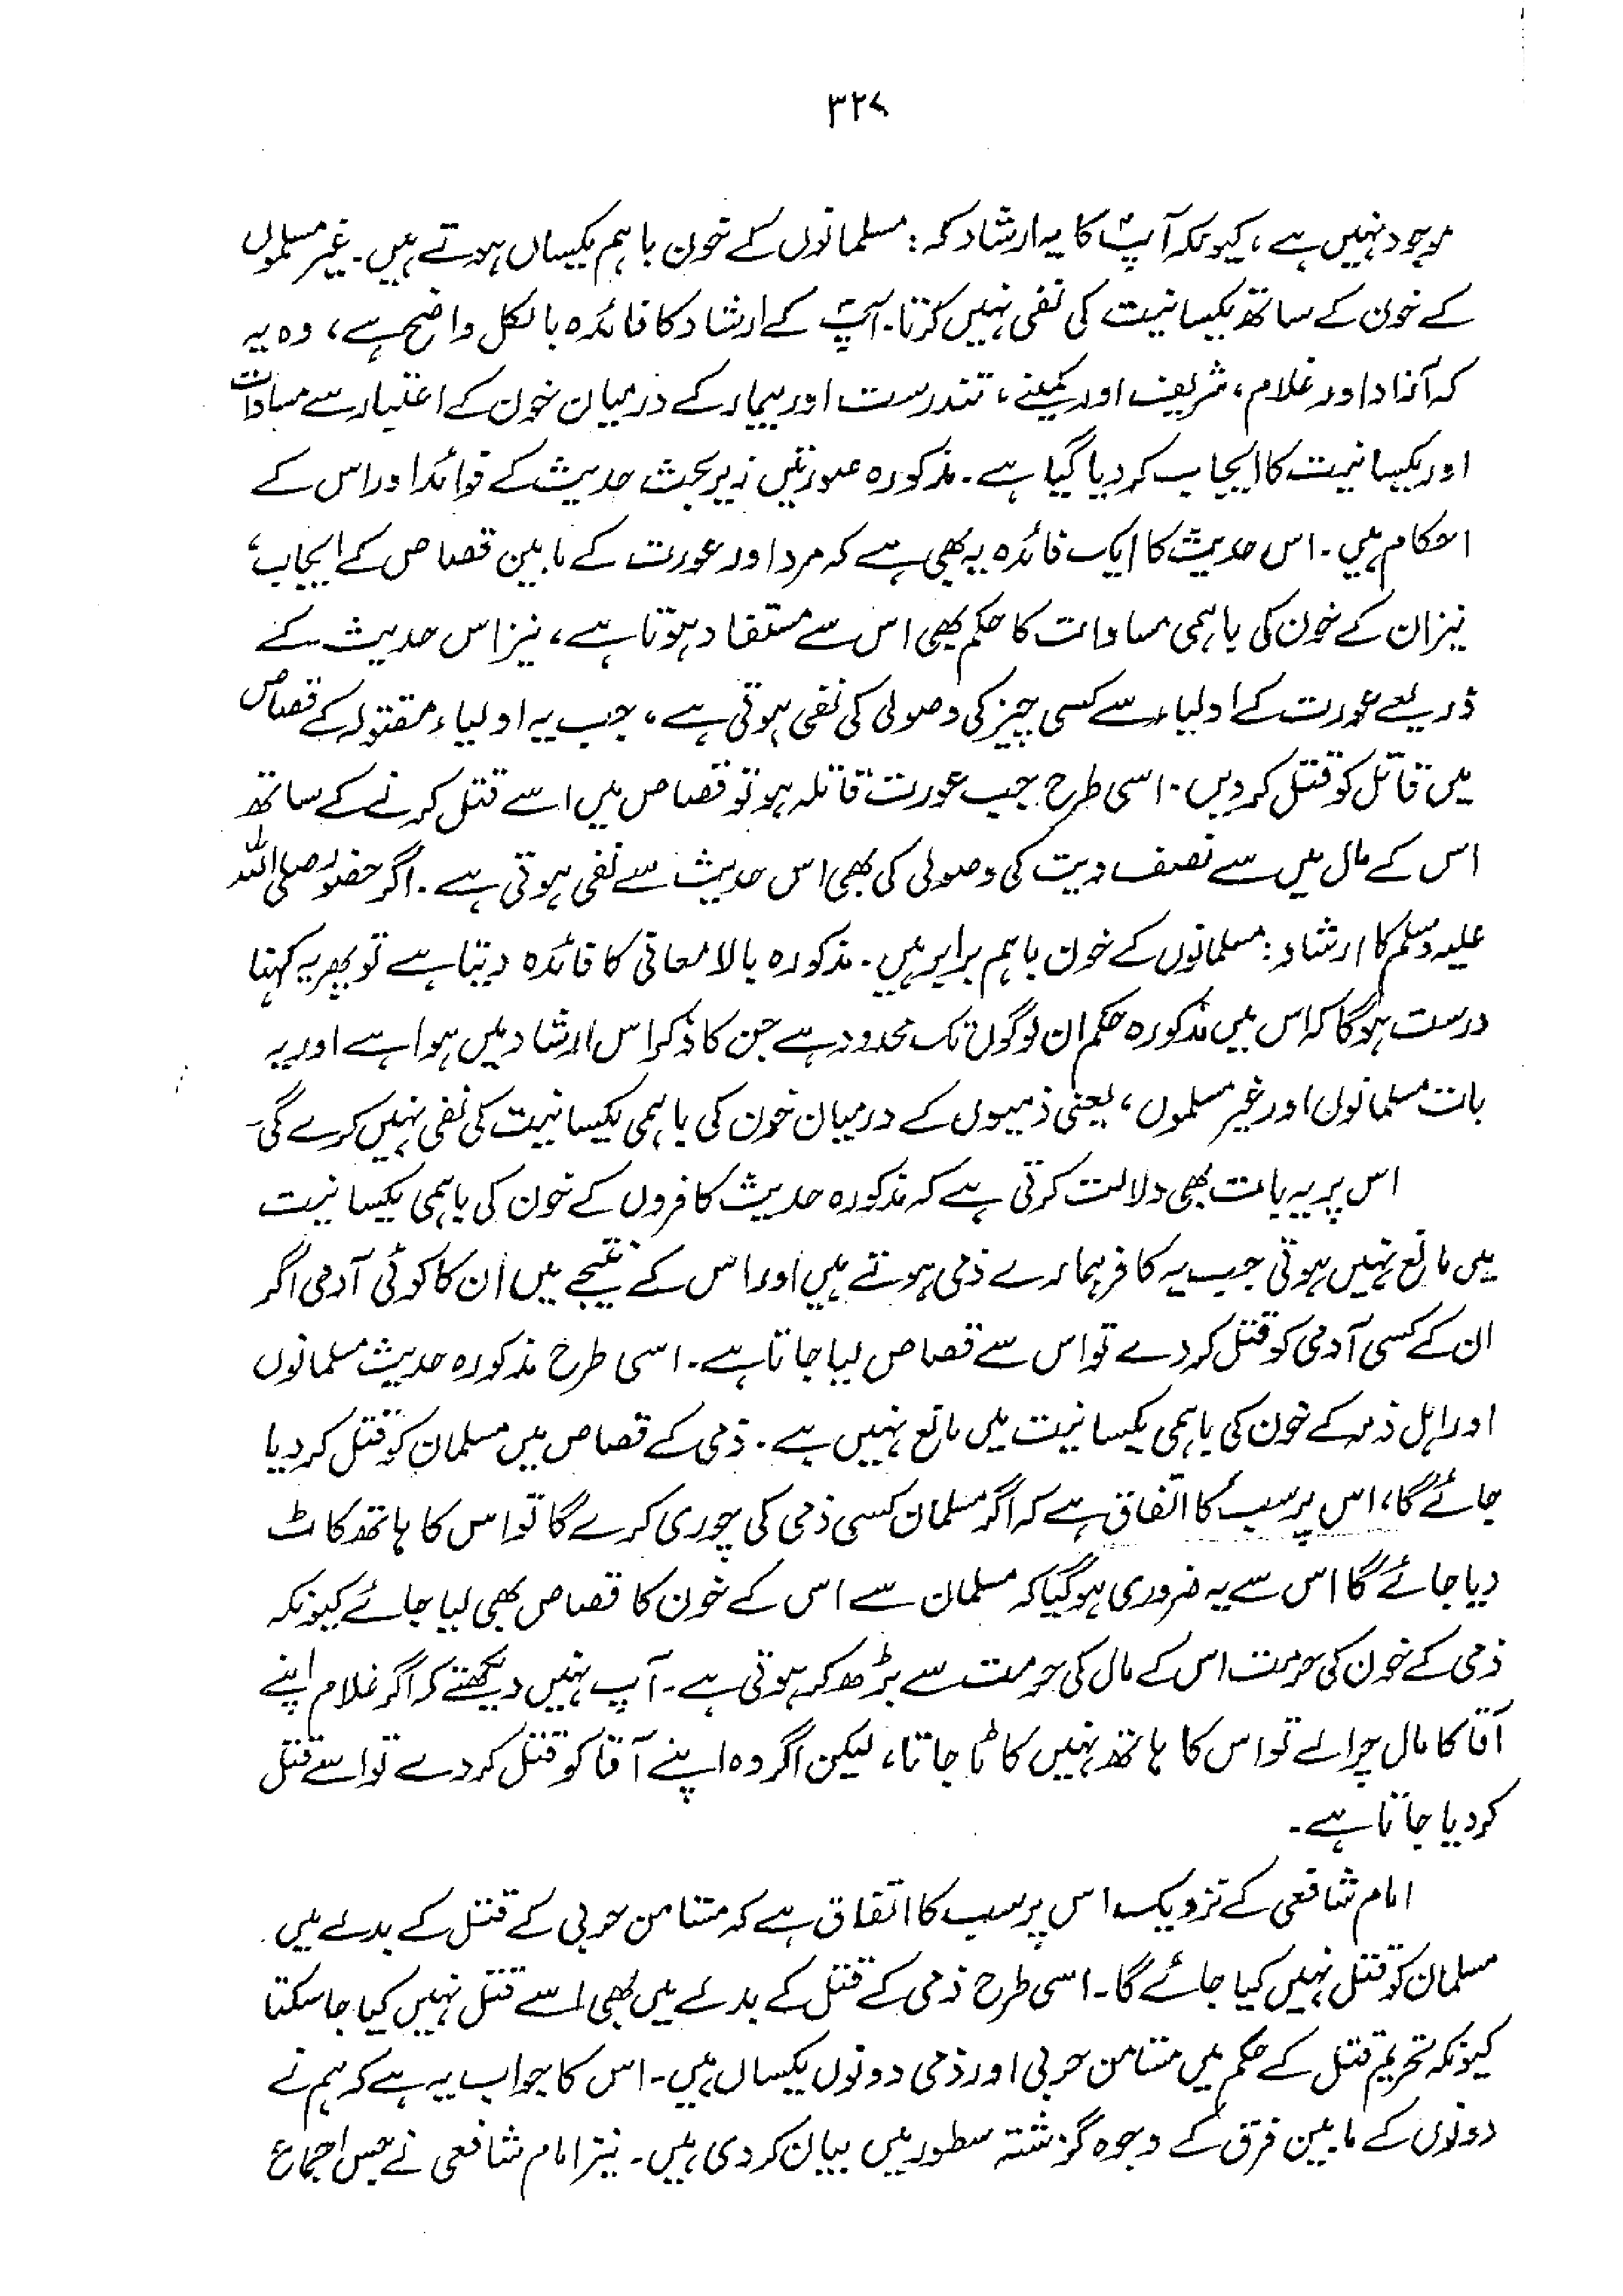 ۳۲۷
موجود نہیں ہے، کیونکہ آپؐ کا یہ ارشاد کہ: مسلمانوں کے خون باہم یکساں ہوتے ہیں۔ غیر مسلموں
کے خون کے ساتھ یکسانیت کی نفی نہیں کرتا۔ آپؐ کے ارشاد کا فائدہ بالکل واضح ہے، وہ یہ
کہ آزاد اور غلام، شریف اور کمینے، تندرست اور بیمار کے درمیان خون کے اعتبار سے مساوات
اور یکسانیت کا ایجاب کر دیا گیا ہے۔ مذکورہ صورتیں زیر بحث حدیث کے فوائد اور اس کے
احکام ہیں۔ اس حدیث کا ایک فائدہ یہ بھی ہے کہ مرد اور عورت کے مابین قصاص کے ایجاب،
نیز ان کے خون کی باہمی مساوات کا حکم بھی اس سے مستفاد ہوتا ہے، نیز اس حدیث کے
ذریعے عورت کے اولیاء سے کسی چیز کی وصولی کی نفی ہوتی ہے، جب یہ اولیاء مقتولہ کے قصاص
میں قاتل کو قتل کر دیں۔ اسی طرح جب عورت قاتلہ ہو تو قصاص میں اسے قتل کرنے کے ساتھ
اس کے مال میں سے نصف دیت کی وصولی کی بھی اس حدیث سے نفی ہوتی ہے۔ اگر حضور صلی اللہ
علیہ وسلم کا ارشاد: مسلمانوں کے خون باہم برابر ہیں۔ مذکورہ بالا معانی کا فائدہ دیتا ہے تو پھر یہ کہنا
درست ہوگا کہ اس میں مذکورہ حکم ان لوگوں تک محدود ہے جن کا ذکر اس ارشاد میں ہوا ہے اور یہ
بات مسلمانوں اور غیر مسلموں، یعنی ذمیوں کے درمیان خون کی باہمی یکسانیت کی نفی نہیں کرے گی۔
اس پر یہ بات بھی دلالت کرتی ہے کہ مذکورہ حدیث کافروں کے خون کی باہمی یکسانیت
میں مانع نہیں ہوتی جب یہ کافر ہمارے ذمی ہوتے ہیں اور اس کے نتیجے میں ان کا کوئی آدمی اگر
ان کے کسی آدمی کو قتل کر دے تو اس سے قصاص لیا جاتا ہے۔ اسی طرح مذکورہ حدیث مسلمانوں
اور اہل ذمہ کے خون کی باہمی یکسانیت میں مانع نہیں ہے۔ ذمی کے قصاص میں مسلمان کو قتل کر دیا
جائے گا، اس پر سب کا اتفاق ہے کہ اگر مسلمان کسی ذمی کی چوری کرے گا تو اس کا ہاتھ کاٹ
دیا جائے گا اس سے یہ ضروری ہوگیا کہ مسلمان سے اس کے خون کا قصاص بھی لیا جائے کیونکہ
ذمی کے خون کی حرمت اس کے مال کی حرمت سے بڑھ کر ہوتی ہے۔ آپ نہیں دیکھتے کہ اگر غلام اپنے
آقا کا مال چرا لے تو اس کا ہاتھ نہیں کاٹا جاتا، لیکن اگر وہ اپنے آقا کو قتل کر دے تو اسے قتل
کر دیا جاتا ہے۔
امام شافعی کے نزدیک اس پر سب کا اتفاق ہے کہ مستامن حربی کے قتل کے بدلے میں
مسلمان کو قتل نہیں کیا جائے گا۔ اسی طرح ذمی کے قتل کے بدلے میں بھی اسے قتل نہیں کیا جا سکتا
کیونکہ تحریم قتل کے حکم میں مستامن حربی اور ذمی دونوں یکساں ہیں۔ اس کا جواب یہ ہے کہ ہم نے
دونوں کے مابین فرق کے وجوہ گزشتہ سطور میں بیان کر دی ہیں۔ نیز امام شافعی نے جس اجماع